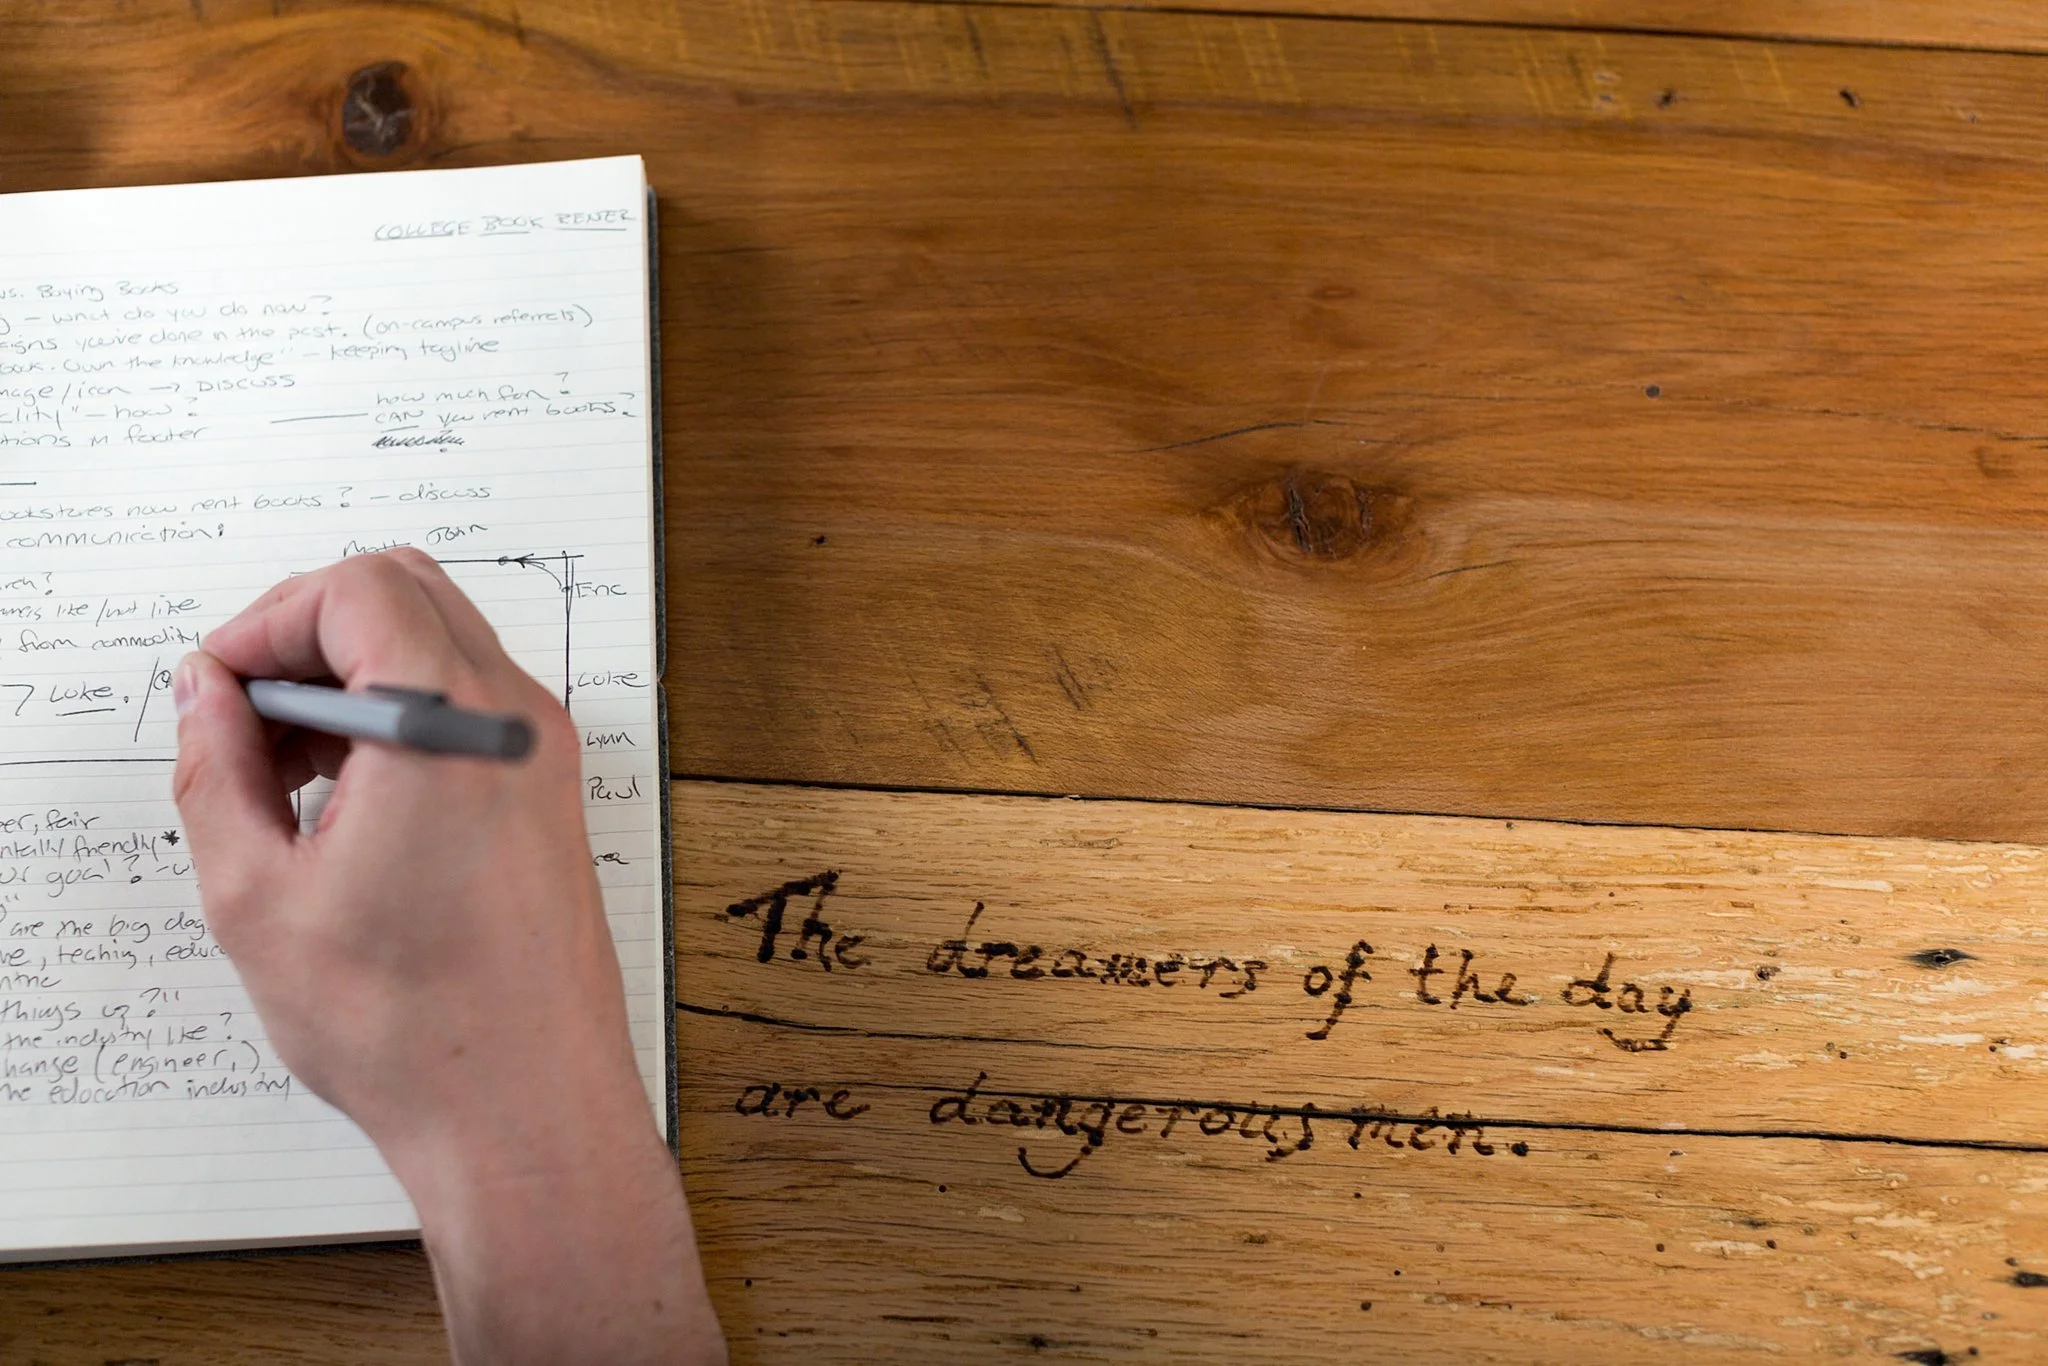 COLLEGE BOOK RENER
vs. Buying Books
g - what do you do now?
aigns you've done in the past. (on-campus referrals)
book. Own the knowledge" - keeping tagline
mage/icon → DISCUSS
how much fun?
clity" - how?
CAN you rent books?
tions in footer
ookstores now rent books? - discuss
communication:
Matt John
Eric
rch?
like/not like
from commodity
Luke
7 Luke.
Lynn
Paul
er, fair
ntally friendly*
ur goal? - w
g"
are the big dog
ve, teaching, educa
ntric
things up?"
the industry like?
hange (engineer,)
he education industry
The dreamers of the day
are dangerous men.